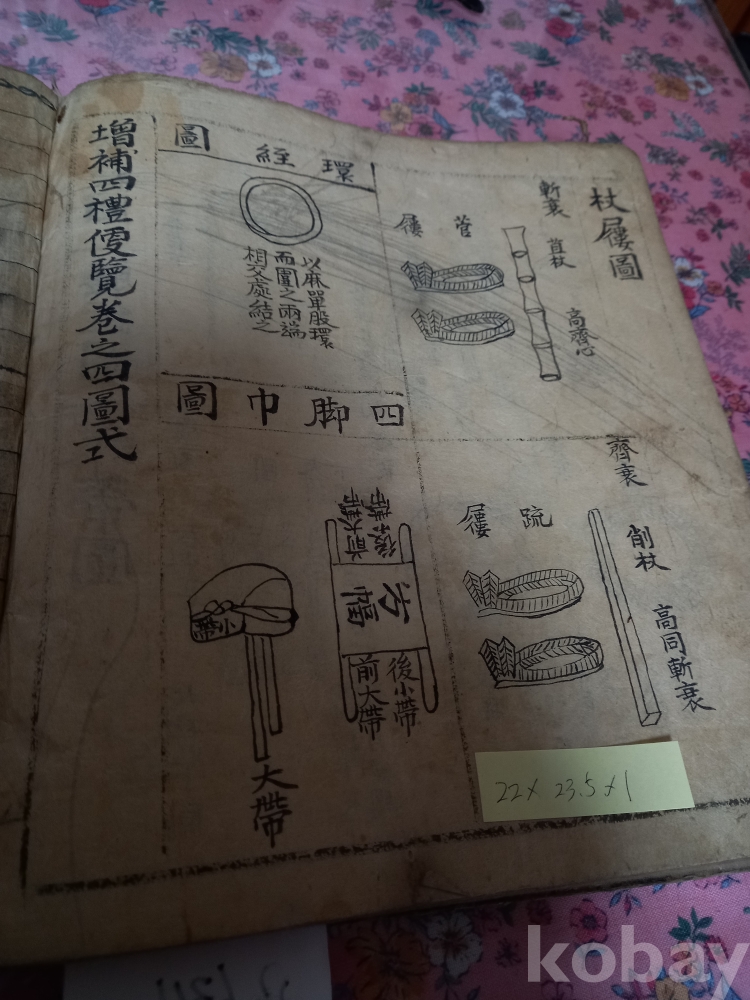 杖屨圖
斬衰
苴杖
高齊心
菅屨
齊衰
削杖
高同斬衰
疏屨
環絰圖
以麻單股環
而圍之兩端
相交處結之
四脚巾圖
方幅
後小帶
前大帶
小帶
大帶
增補四禮便覽卷之四圖式
22 x 23.5 x 1
kobay